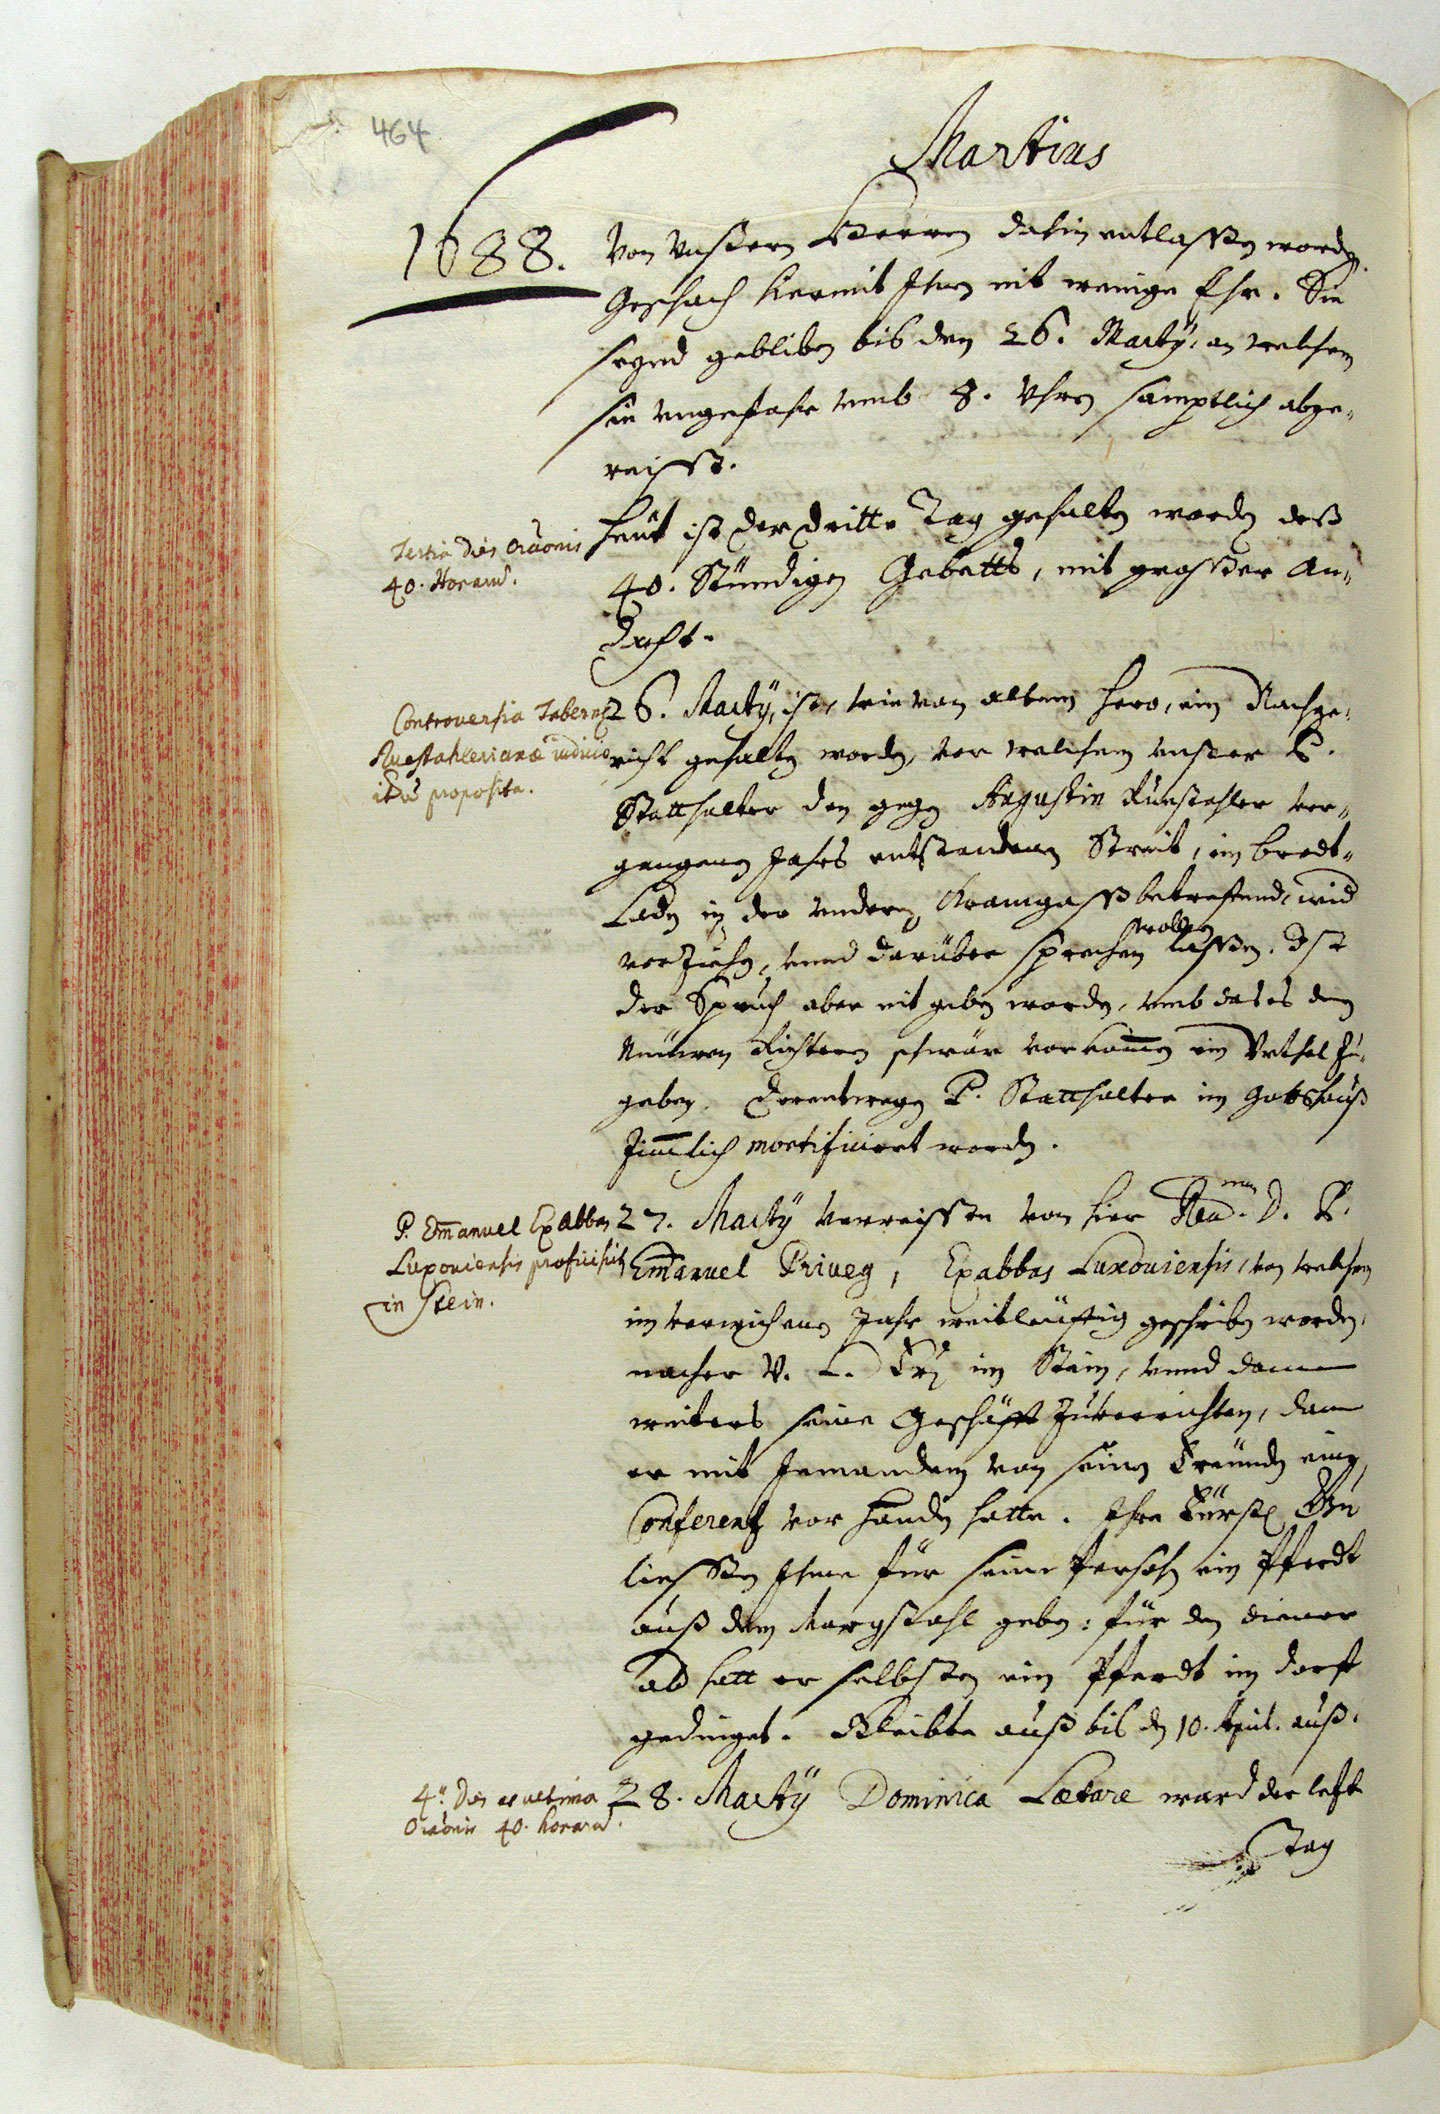 464
Martius
1688.
Von Unsßeren Herren dahin entlassen worden.
Geschach hiermit Ihnen nit wenige Ehr. Sie
seynd gebliben bis den 26. Martÿ, an welchem
sie ungefahr umb 8. Uhren sämptlich abge-
reisst.
Tertia Dies Orãonis
40. Horarũ.
Heut ist der dritte Tag gehalten worden deß
40. Stündigen Gebetts, mit grosser An-
dacht.
Controversia Tabernæ
Ruestahlerianæ iudicio
proposita.
26. Martÿ, ist, wie von altem hero, ein Nachge-
richt gehalten worden, vor welchem unser P.
Statthalter den gegen Augustin Ruestahler ver-
gangenen Jahrs entstandenen Streit, ein brodt-
Laden in der underen Kramgass betreffend, wid
vorziehen, unnd darüber sprechen wollen lassen. Ist
der Spruch aber nit geben worden, umb das es den
Neüwen Richteren schwär vorkommen ein Urthel zu-
geben. Derentwegen P. Statthalter im Gottshauß
zimmlich mortificiert worden.
P. Em̃anuel Exabbas
Luxoviensis proficiscitur
in Stein.
27. Martÿ verreisste von hier Rev.mus D. P.
Em̃anuel Priveg, Exabbas Luxoviensis, von welchem
im verwichenen Jahr weitläuffig geschriben worden,
nacher U. L. Frũ im Stein, unnd dannen
weiters seine Geschäfft zuverrichten, dann
er mit Jemandem von seinen Freünden eine
Conferenz vor handen hatte. Ihre Fürstl. Gn
liessen Ihme für seine Persohn ein Pferdt
auß dem Margstahl geben: für den diener
aber hatt er selbsten ein Pferdt im dorff
gedinget. Bleibte auß bis den 10. April. auß.
4ta Dies et ultima
Orãonis 40. horarũ.
28. Martÿ Dominica Lætare ward der letste
Tag